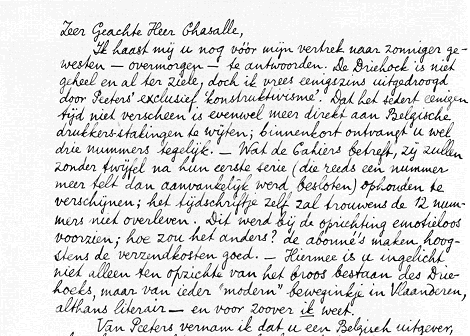 Zeer Geachte Heer Chasalle,
Ik haast mij u nog vóór mijn vertrek naar zonniger ge-
westen — overmorgen — te antwoorden. De Driehoek is niet
geheel en al ter ziele, doch ik vrees eenigszins uitgedroogd
door Peeters' exclusief 'konstruktivisme'. Dat het sedert eenigen
tijd niet verscheen is evenwel meer direkt aan Belgische
drukkers-stakingen te wijten; binnenkort ontvangt u wel
drie nummers tegelijk. — Wat de Cahiers betreft, zij zullen
zonder twijfel na hun eerste serie (die reeds een nummer
meer telt dan aanvankelijk werd besloten) ophouden te
verschijnen; het tijdschriftje zelf zal trouwens de 12 num-
mers niet overleven. Dit werd bij de oprichting emotieloos
voorzien; hoe zou het anders? de abonné's maken hoog-
stens de verzendkosten goed. — Hiermee is u ingelicht
niet alleen ten opzichte van het broos bestaan des Drie-
hoeks, maar van ieder "modern" beweginkje in Vlaanderen,
althans literair — en voor zoover ik weet.
Van Peeters vernam ik dat u een Belgisch uitgever,